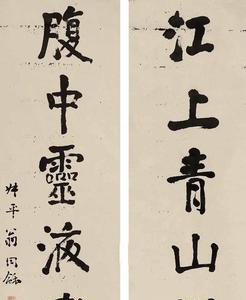 江上青山
腹中靈液
叔平翁同龢